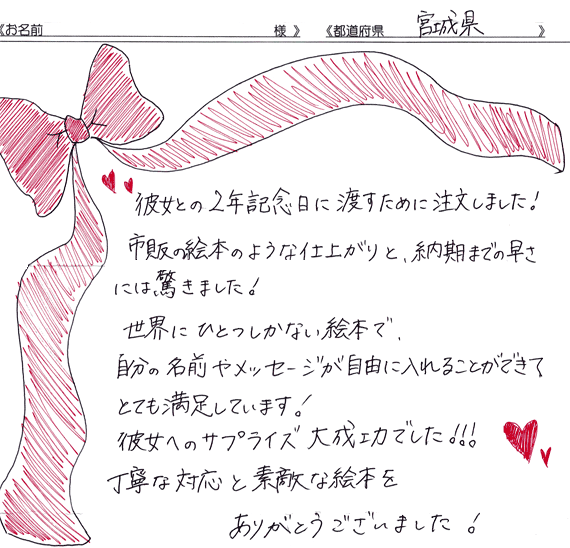 《お名前 様 》 《都道府県 宮城県 》
彼女との2年記念日に渡すために注文しました!
市販の絵本のような仕上がりと、納期までの早さ
には驚きました!
世界にひとつしかない絵本で、
自分の名前やメッセージが自由に入れることができて
とても満足しています!
彼女へのサプライズ大成功でした!!!
丁寧な対応と素敵な絵本を
ありがとうございました!